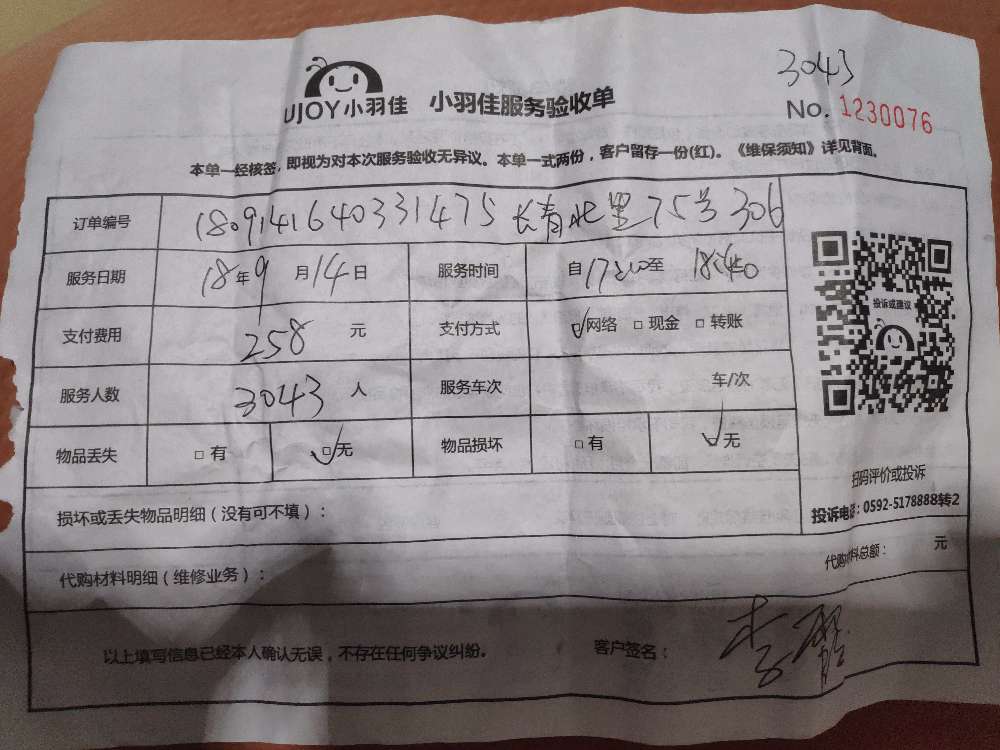 3043
UJOY小羽佳 小羽佳服务验收单
No. 1230076
本单一经核签,即视为对本次服务验收无异议。本单一式两份，客户留存一份(红)。《维保须知》详见背面。
订单编号 1809141640331475 长青北里75号306
服务日期 18年9月14日 服务时间 自17:10至18:40
支付费用 258 元 支付方式 ☑网络 □现金 □转账
投诉或建议
服务人数 3043 人 服务车次 车/次
物品丢失 □有 ☑无 物品损坏 □有 ☑无
扫码评价或投诉
损坏或丢失物品明细（没有可不填）：
投诉电话：0592-5178888转2
代购材料明细（维修业务）：
代购材料总额： 元
以上填写信息已经本人确认无误，不存在任何争议纠纷。 客户签名： 李